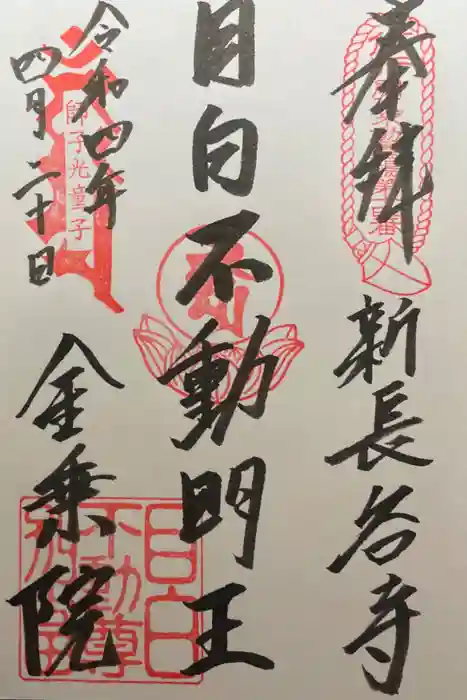 奉拝
新長谷寺
目白不動明王
令和四年
四月二十日
師子光童子
金乗院
目白
不動尊